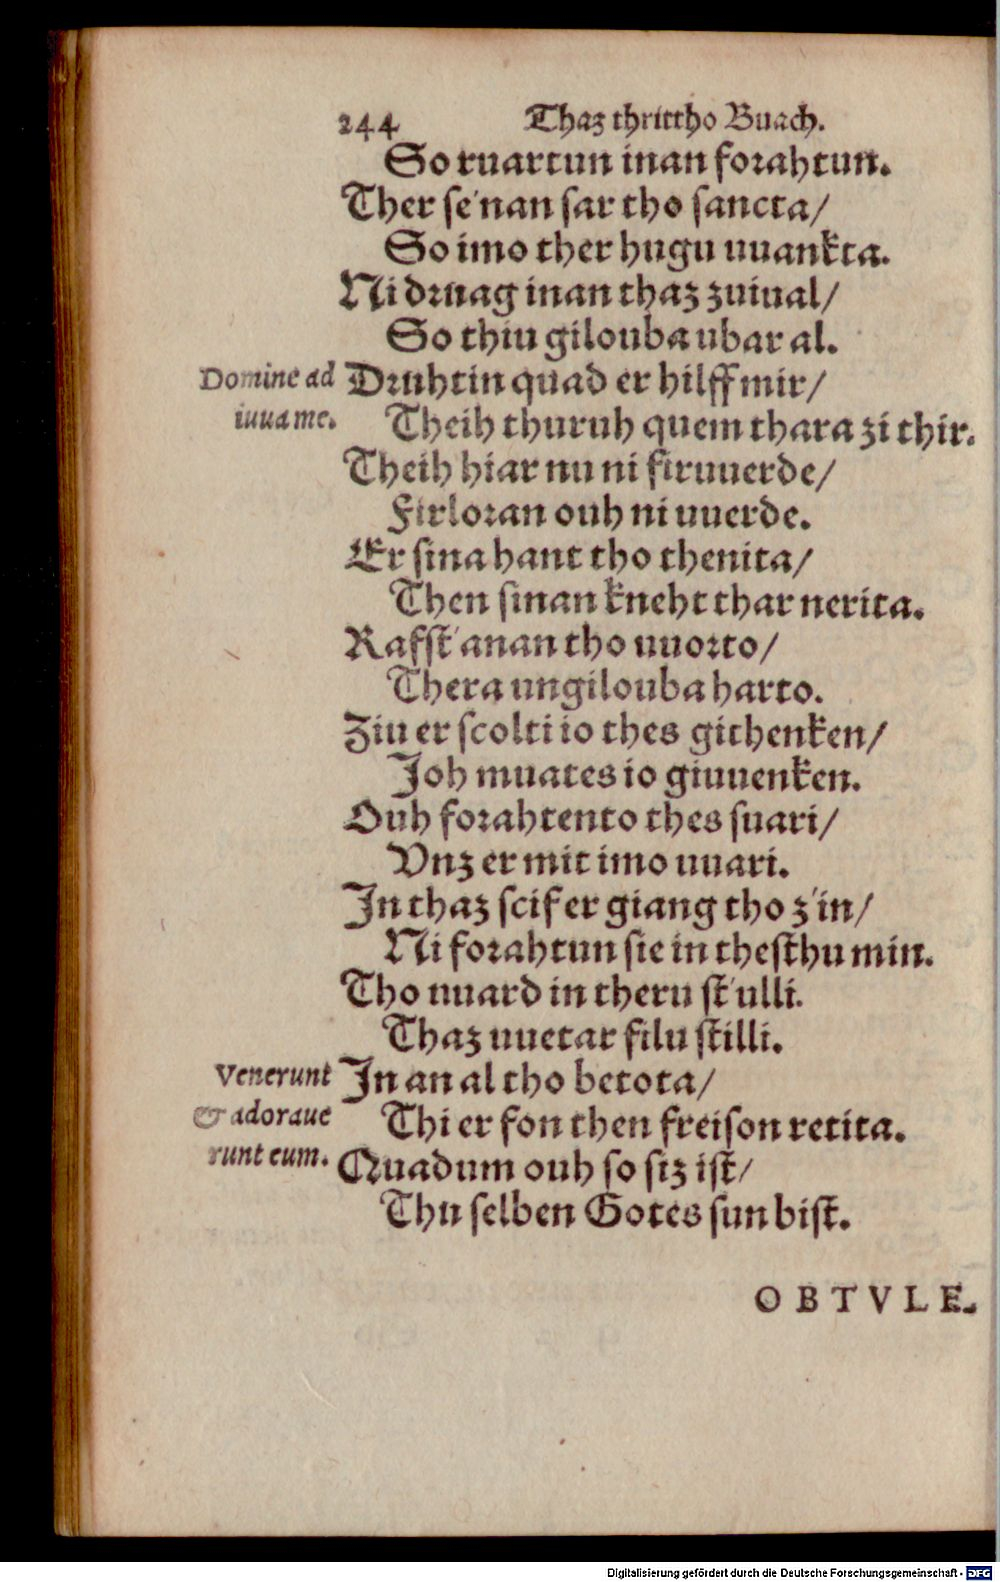 244 Thaz thrittho Buach.
So ruartun inan forahtun.
Ther se'nan sar tho sancta/
So imo ther hugu uuankta.
Ni druag inan thaz zuiual/
So thiu gilouba ubar al.
Domine ad Druhtin quad er hilff mir/
iuua me. Theih thuruh quem thara zi thir.
Theih hiar nu ni firuuerde/
Firloran ouh ni uuerde.
Er sina hant tho thenita/
Then sinan kneht thar nerita.
Rafst'anan tho uuorto/
Thera ungilouba harto.
Ziu er scolti io thes githenken/
Joh muates io giuuenken.
Ouh forahtento thes suari/
Vnz er mit imo uuari.
In thaz scif er giang tho z'in/
Ni forahtun sie in thesthu min.
Tho uuard in theru st'ulli.
Thaz uuetar filu stilli.
Venerunt In an al tho betota/
& adoraue Thi er fon then freison retita.
runt eum. Quadum ouh so siz ist/
Thu selben Gotes sun bist.
OBTVLE.
Digitalisierung gefördert durch die Deutsche Forschungsgemeinschaft - DFG